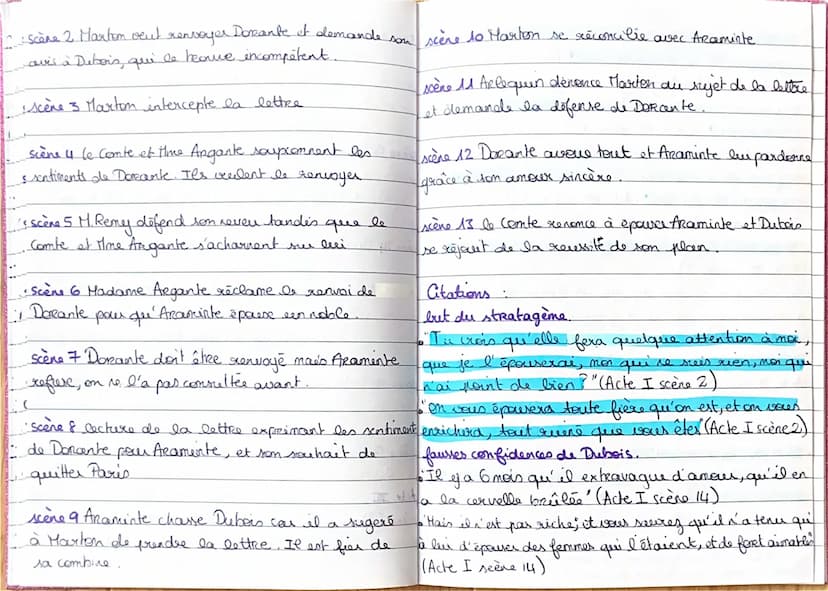 scène 2 Marton veut renvoyer Dorante et demande son
avis à Dubois, qui le trouve incompétent.
scène 3 Marton intercepte la lettre
scène 4 le Comte et Mme Argante soupçonnent les
sentiments de Dorante. Ils veulent le renvoyer
scène 5 M. Remy défend son neveu tandis que le
Comte et Mme Argante s'acharnent sur lui
scène 6 Madame Argante réclame le renvoi de
Dorante pour qu'Araminte épouse un noble.
scène 7 Dorante doit être renvoyé mais Araminte
refuse, on ne l'a pas consultée avant.
scène 8 lecture de la lettre exprimant les sentiment
de Dorante pour Araminte, et son souhait de
quitter Paris
scène 9 Araminte chasse Dubois car il a sugéré
à Marton de prendre la lettre. Il est fier de
sa combine.
scène 10 Marton se réconcilie avec Araminte
scène 11 Arlequin dénonce Marton au sujet de la lettre
et demande la défense de Dorante.
scène 12 Dorante avoue tout et Araminte lui pardonne
grâce à son amour sincère.
scène 13 le Comte renonce à épouser Araminte et Dubois
se réjouit de la réussité de son plan.
Citations :
but du stratagème
"Tu crois qu'elle fera quelque attention à moi,
que je l'épouserai, moi qui ne suis rien, moi qui
n'ai point de bien ?" (Acte I scène 2)
"on vous épousera toute fière qu'on est, et on vous
enrichira, tout ruiné que vous êtes" (Acte I scène 2)
fausses confidences de Dubois.
"Il y a 6 mois qu'il extravague d'amour, qu'il en
a la cervelle brûlée" (Acte I scène 14)
"Mais il n'est pas riche; et vous saurez qu'il n'a tenu qu'
à lui d'épouser des femmes qui l'étaient, et de fort aimables"
(Acte I scène 14)